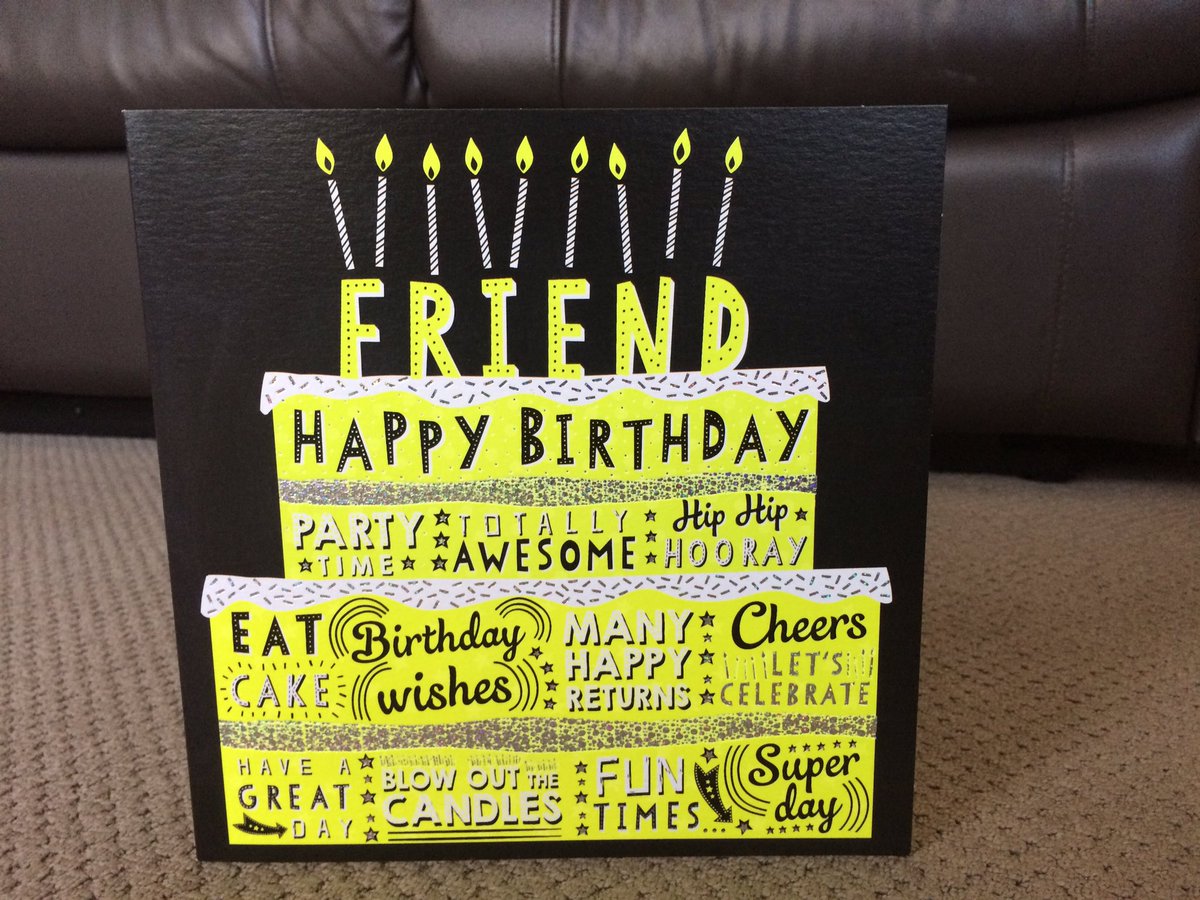 FRIEND
HAPPY BIRTHDAY
PARTY
TIME
TOTALLY
AWESOME
Hip Hip
HOORAY
EAT
CAKE
Birthday
wishes
MANY
HAPPY
RETURNS
Cheers
LET'S
CELEBRATE
HAVE A
GREAT
DAY
BLOW OUT THE
CANDLES
FUN
TIMES...
Super
day